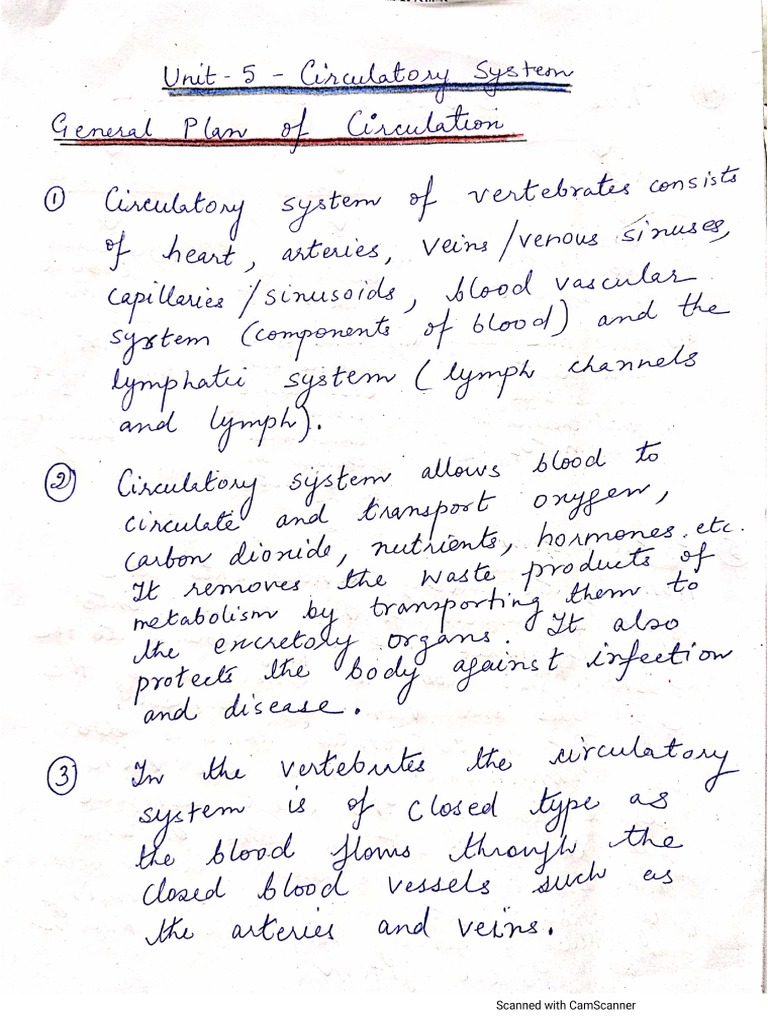 Unit - 5 - Circulatory System
General Plan of Circulation
① Circulatory system of vertebrates consists
of heart, arteries, veins/venous sinuses,
capillaries/sinusoids, blood vascular
system (components of blood) and the
lymphatic system (lymph channels
and lymph).
② Circulatory system allows blood to
circulate and transport oxygen,
carbon dioxide, nutrients, hormones etc.
It removes the waste products of
metabolism by transporting them to
the excretory organs. It also
protects the body against infection
and disease.
③ In the vertebrates the circulatory
system is of closed type as
the blood flows through the
closed blood vessels such as
the arteries and veins.
Scanned with CamScanner